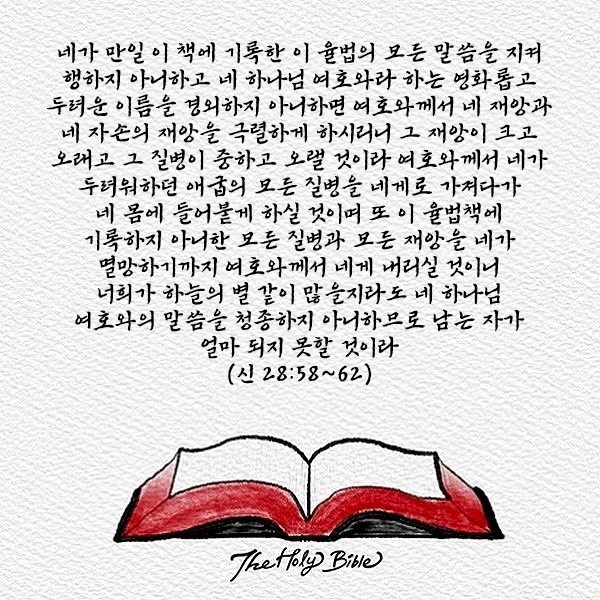 네가 만일 이 책에 기록한 이 율법의 모든 말씀을 지켜
행하지 아니하고 네 하나님 여호와라 하는 영화롭고
두려운 이름을 경외하지 아니하면 여호와께서 네 재앙과
네 자손의 재앙을 극렬하게 하시리니 그 재앙이 크고
오래고 그 질병이 중하고 오랠 것이라 여호와께서 네가
두려워하던 애굽의 모든 질병을 네게로 가져다가
네 몸에 들어붙게 하실 것이며 또 이 율법책에
기록하지 아니한 모든 질병과 모든 재앙을 네가
멸망하기까지 여호와께서 네게 내리실 것이니
너희가 하늘의 별 같이 많을지라도 네 하나님
여호와의 말씀을 청종하지 아니하므로 남는 자가
얼마 되지 못할 것이라
(신 28:58~62)
The Holy Bible